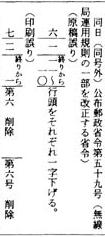 日（同号外）公布郵政省令第五十九号（無線
局運用規則の一部を改正する省令）
（原稿誤り）
六 一 終りから 一〇〜一 行頭をそれぞれ一字下げる。
（印刷誤り）
七 二 終りから 一 第六 削除 第六号 削除